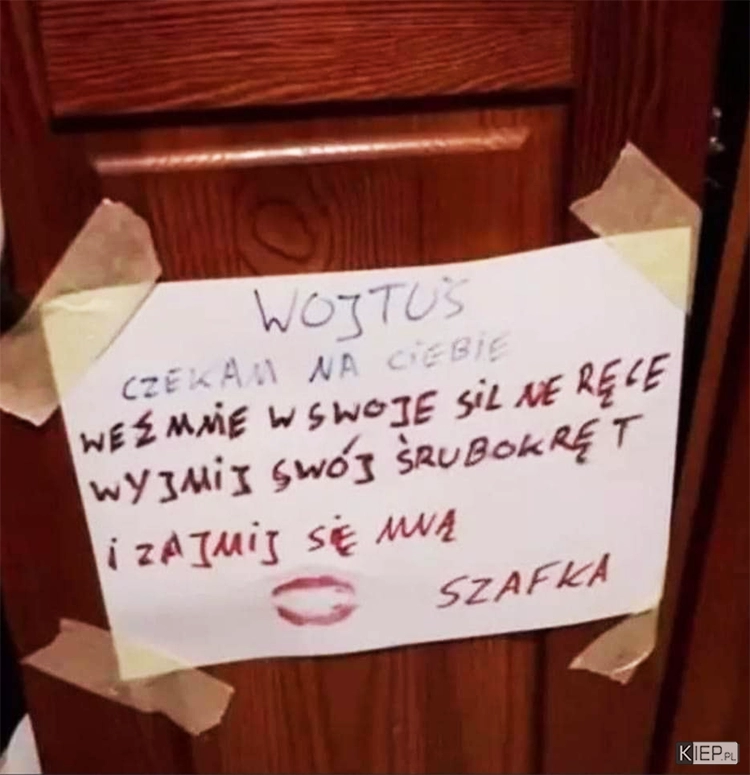 WOJTUŚ
CZEKAM NA CIEBIE
WEŹ MNIE W SWOJE SILNE RĘCE
WYJMIJ SWÓJ ŚRUBOKRĘT
I ZAJMIJ SIĘ MNĄ
SZAFKA
KIEP.PL